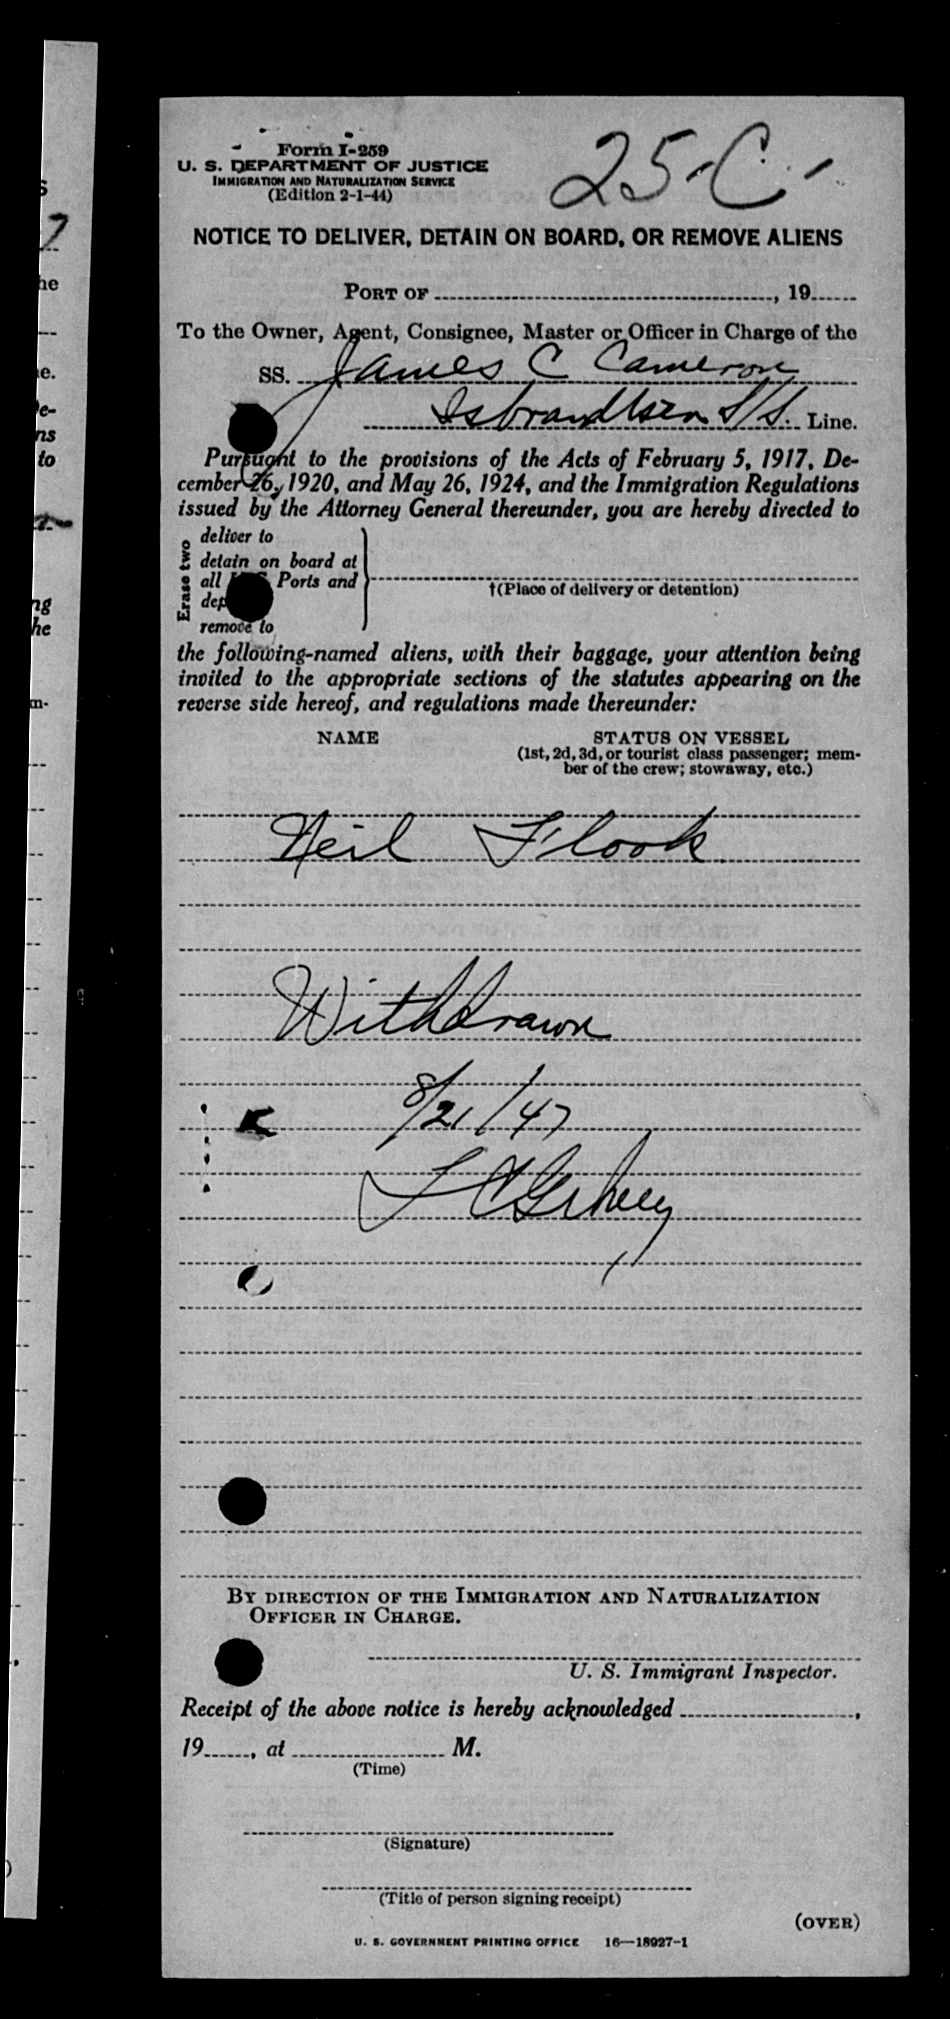 Form I-259
25-C-
U. S. DEPARTMENT OF JUSTICE
IMMIGRATION AND NATURALIZATION SERVICE
(Edition 2-1-44)
NOTICE TO DELIVER, DETAIN ON BOARD, OR REMOVE ALIENS
PORT OF ........................................, 19......
To the Owner, Agent, Consignee, Master or Officer in Charge of the
SS. James C Cameron
Isbrandtsen S/S. Line.
Pursuant to the provisions of the Acts of February 5, 1917, De-
cember 26, 1920, and May 26, 1924, and the Immigration Regulations
issued by the Attorney General thereunder, you are hereby directed to
Erase two
deliver to
detain on board at
all Ports and
remove to
†(Place of delivery or detention)
the following-named aliens, with their baggage, your attention being
invited to the appropriate sections of the statutes appearing on the
reverse side hereof, and regulations made thereunder:
NAME STATUS ON VESSEL
(1st, 2d, 3d, or tourist class passenger; mem-
ber of the crew; stowaway, etc.)
Neil Flook
Withdrawn
8/21/47
BY DIRECTION OF THE IMMIGRATION AND NATURALIZATION
OFFICER IN CHARGE.
U. S. Immigrant Inspector.
Receipt of the above notice is hereby acknowledged ........................,
19......, at .................... M.
(Time)
(Signature)
(Title of person signing receipt)
(OVER)
U. S. GOVERNMENT PRINTING OFFICE 16—18927-1